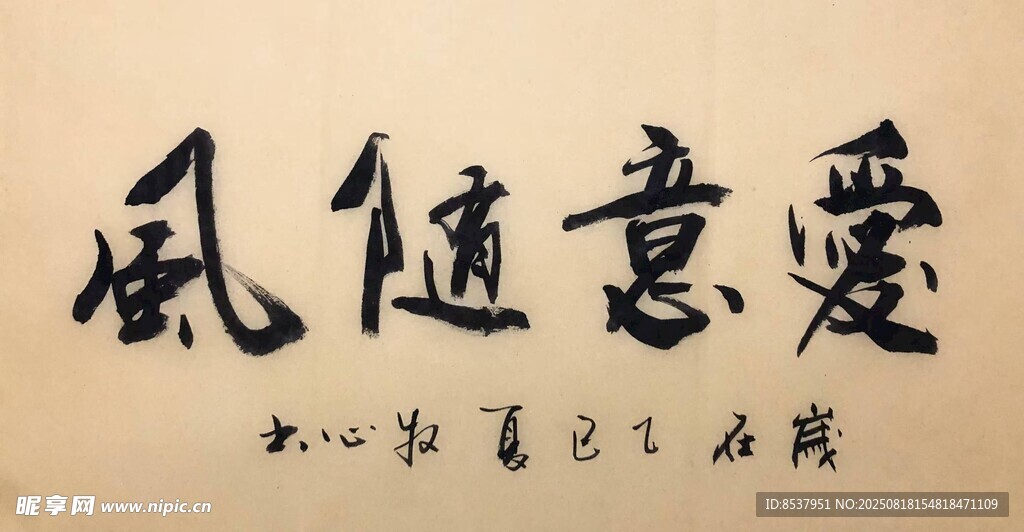 愛意隨風
歲在乙巳夏牧心书
昵享网 www.nipic.cn
ID:8537951 NO:20250818154818471109